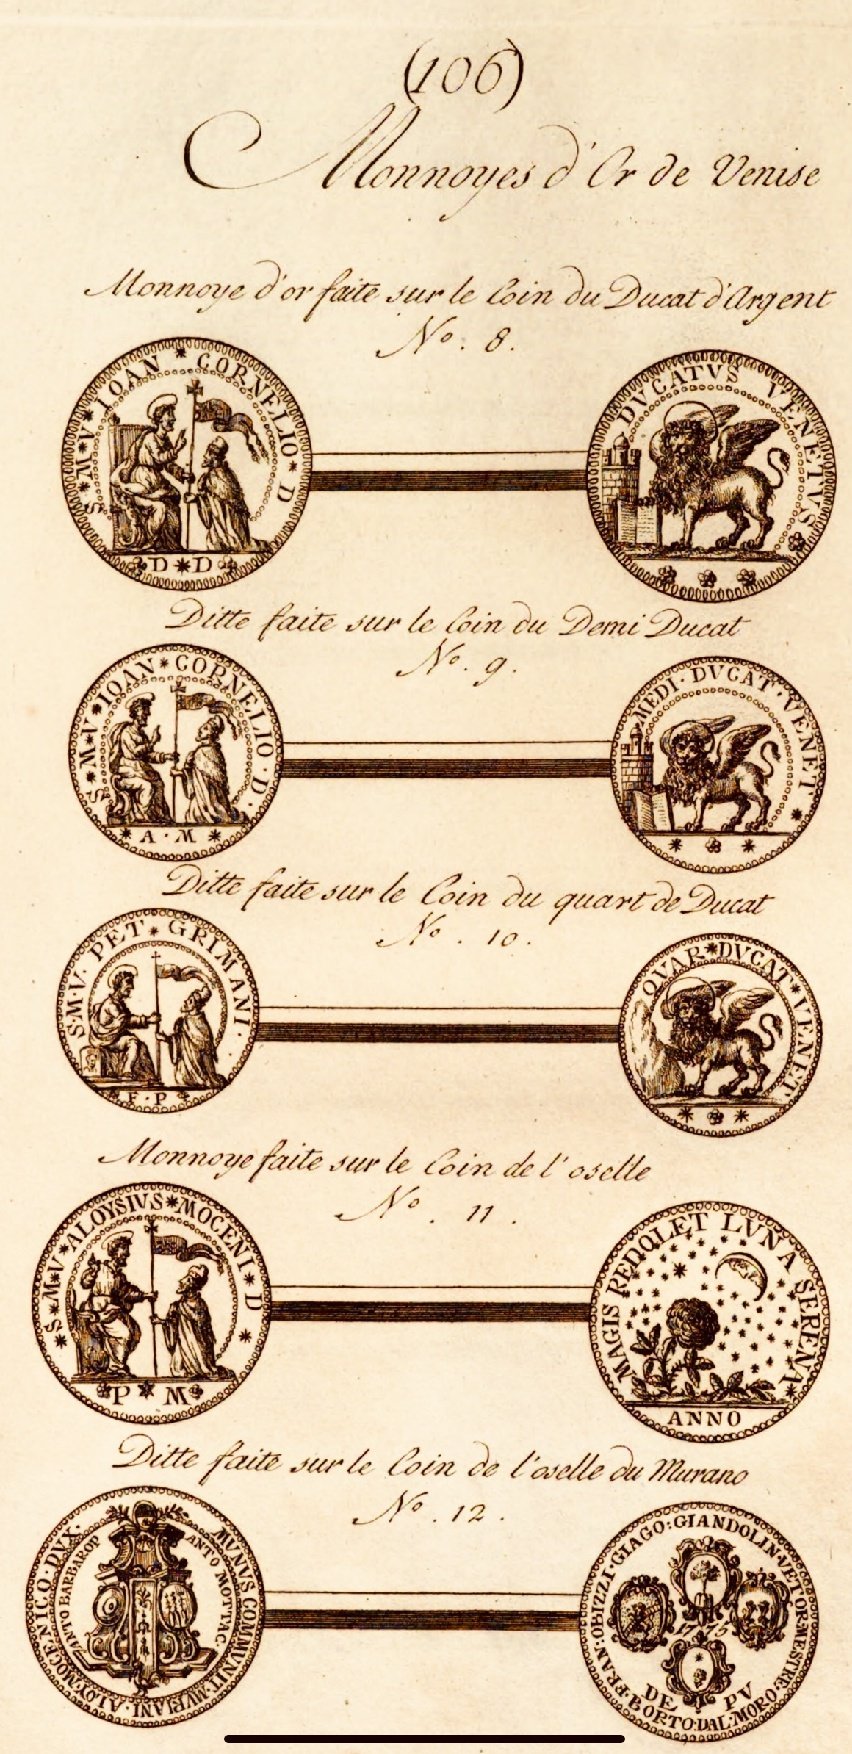 (106)
Monnoyes d'Or de Venise
Monnoye d'or faite sur le Coin du Ducat d'Argent
No. 8.
S*M*V*IOAN*CORNELIO*D
D*D
DVCATVS VENETVS
Ditte faite sur le Coin du Demi Ducat
No. 9.
S*M*V*IOAN*CORNELIO·D·
*A·M*
MEDI·DVCAT·VENET*
Ditte faite sur le Coin du quart de Ducat
No. 10.
S·M·V·PET*GRIMANI·
F·P
QVAR*DVCAT*VENET
Monnoye faite sur le Coin de l'oselle
No. 11.
*S*M*V*ALOYSIVS*MOCENI*D*
P*M
MAGIS REDOLET LVNA SERENA
ANNO
Ditte faite sur le Coin de l'oselle du Murano
No. 12.
ALOY·MOCENICO·DVX·
MVNVS COMMVNIT·MVRIANI·
ANTO BARBARO P
ANTO MOTTA C
FRAN:OBIZZI·GIAGO:GIANDOLIN·VETOR·MESTRE·
BORTO:DAL·MORO
1775
DE PV